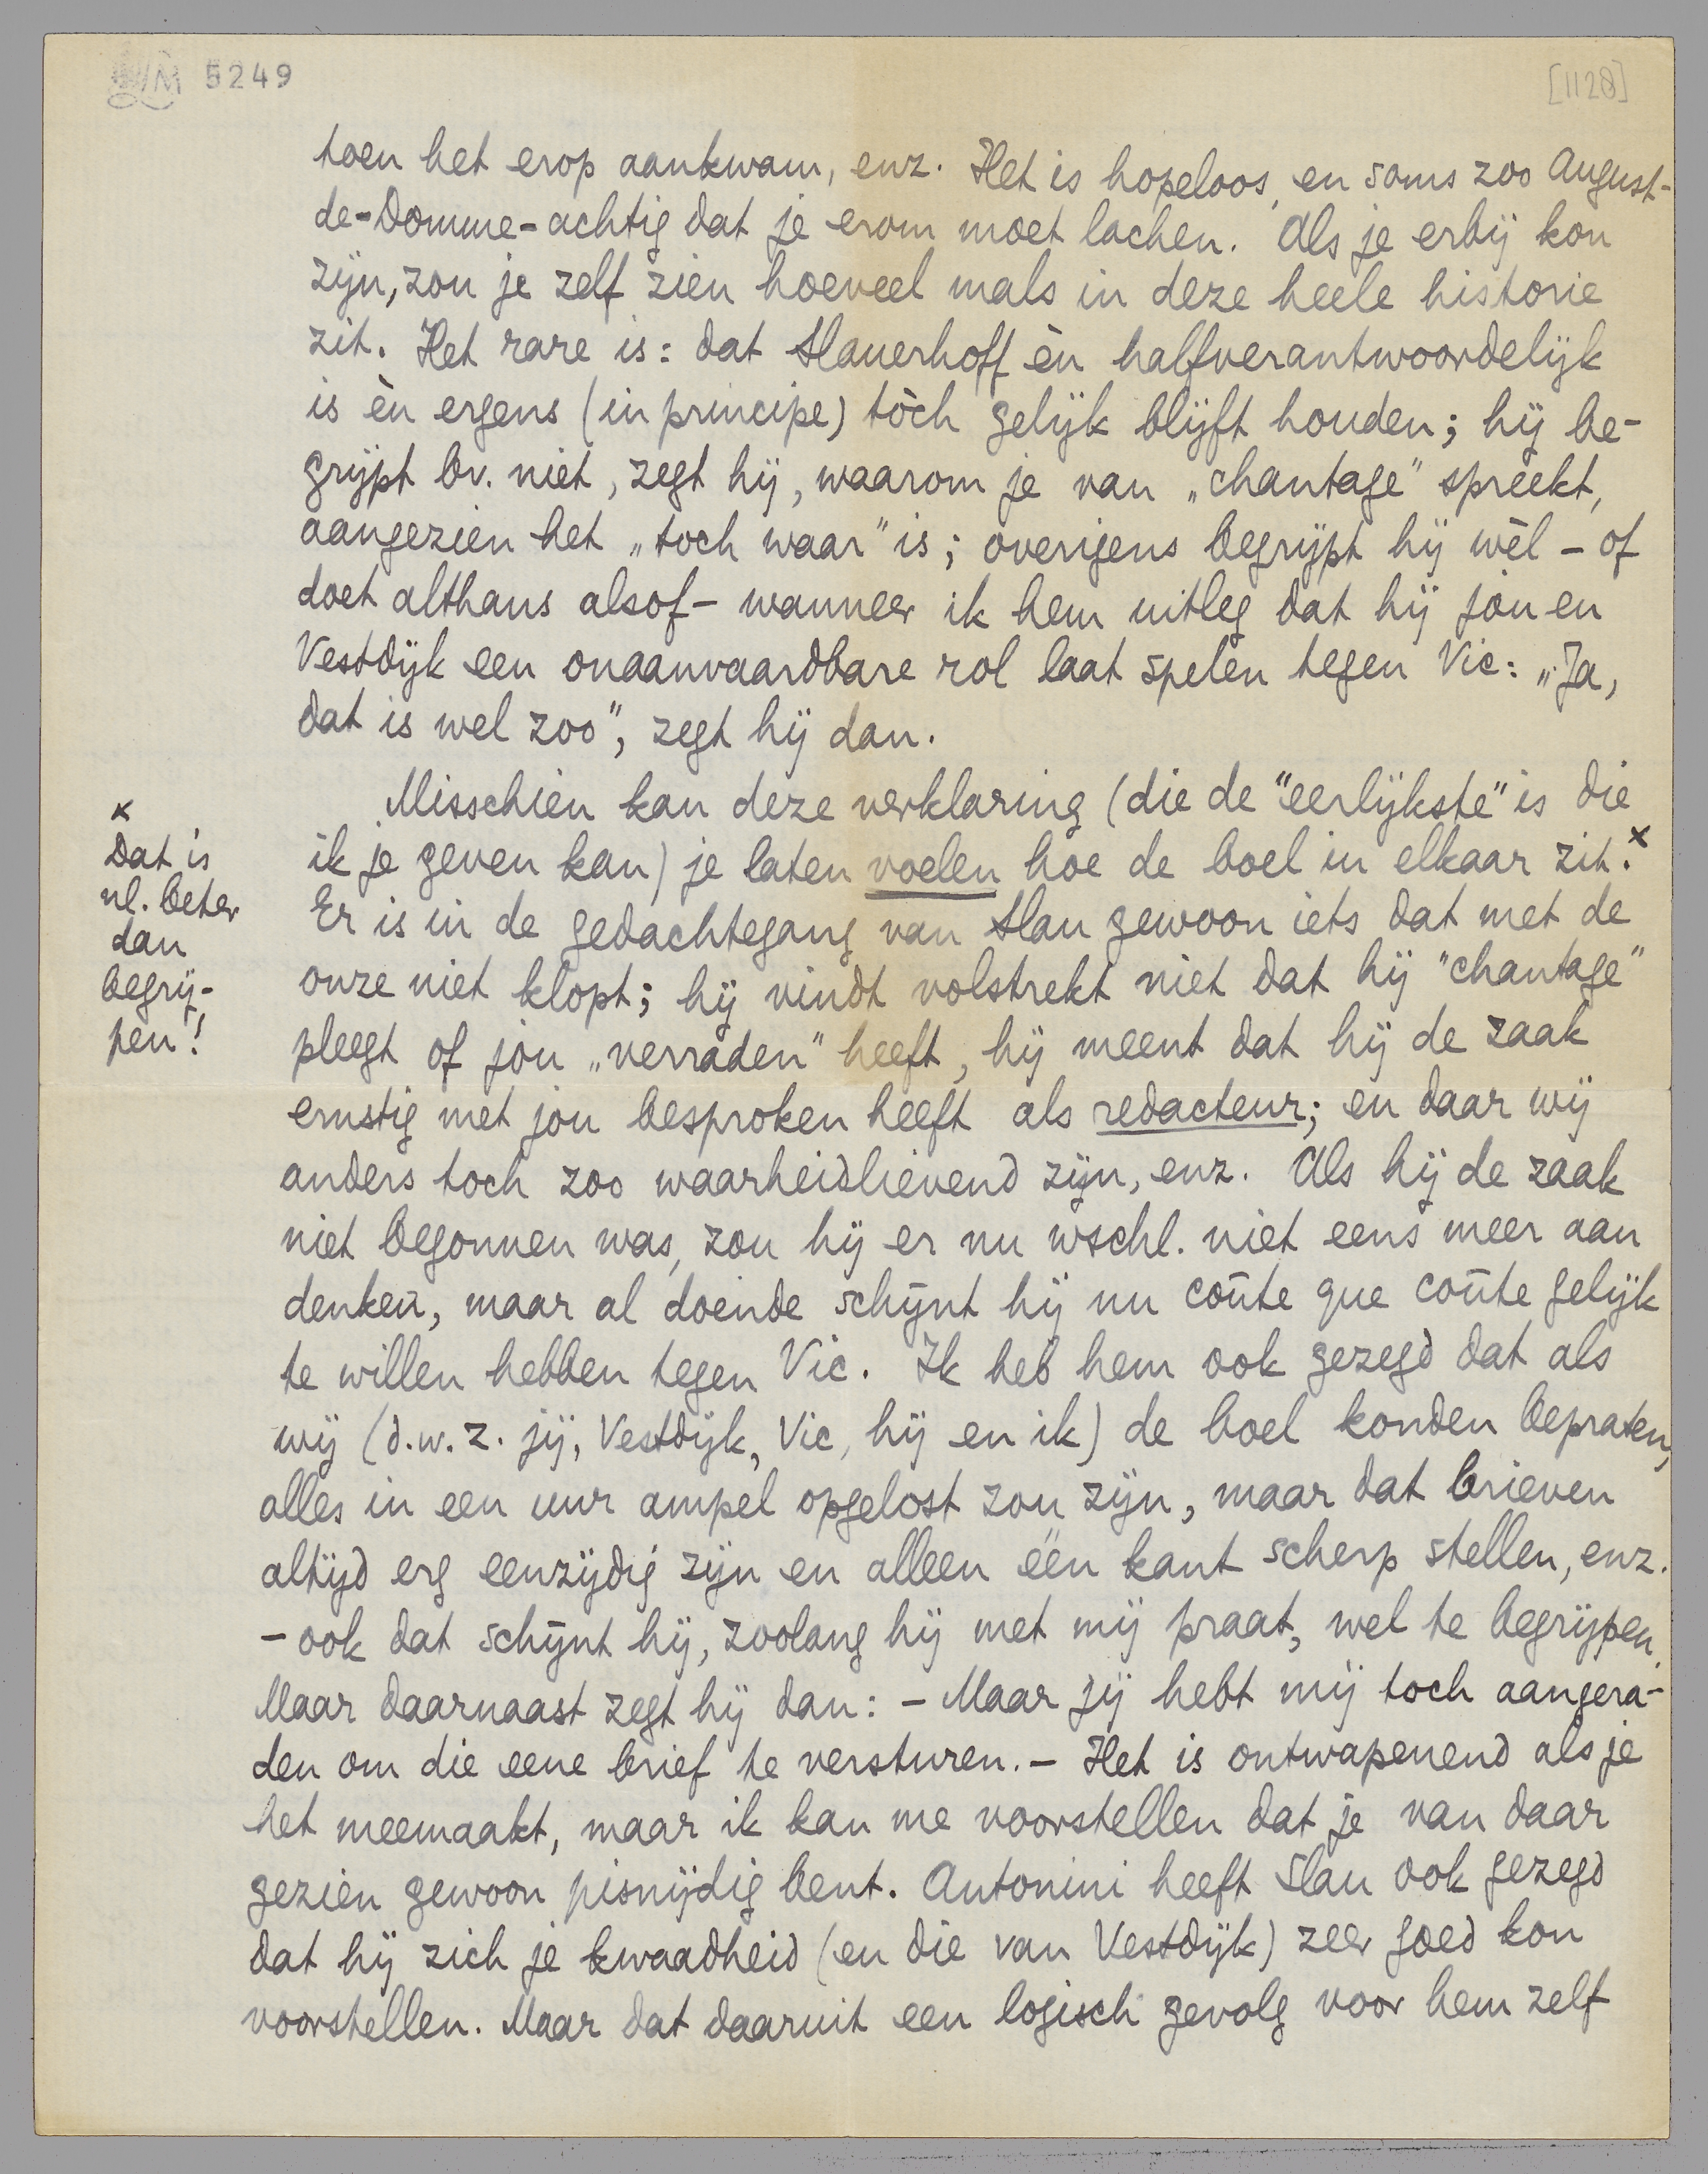 5249
[1128]
toen het erop aankwam, enz. Het is hopeloos, en soms zoo August-
de-Domme-achtig dat je erom moet lachen. Als je erbij kon
zijn, zou je zelf zien hoeveel mals in deze heele historie
zit. Het rare is: dat Slauerhoff èn halfverantwoordelijk
is èn ergens (in principe) tòch gelijk blijft houden; hij be-
grijpt bv. niet, zegt hij, waarom je van „chantage" spreekt,
aangezien het „toch waar" is; overigens begrijpt hij wèl - of
doet althans alsof - wanneer ik hem uitleg dat hij jou en
Vestdijk een onaanvaardbare rol laat spelen tegen Vic: „Ja,
dat is wel zoo", zegt hij dan.
Misschien kan deze verklaring (die de "eerlijkste" is die
ik je geven kan) je laten voelen hoe de boel in elkaar zit.x
Er is in de gedachtegang van Slau gewoon iets dat met de
onze niet klopt; hij vindt volstrekt niet dat hij "chantage"
pleegt of jou „verraden" heeft, hij meent dat hij de zaak
ernstig met jou besproken heeft als redacteur; en daar wij
anders toch zoo waarheidlievend zijn, enz. Als hij de zaak
niet begonnen was, zou hij er nu wschl. niet eens meer aan
denken, maar al doende schijnt hij nu coûte que coûte gelijk
te willen hebben tegen Vic. Ik heb hem ook gezegd dat als
wij (d.w.z. jij, Vestdijk, Vic, hij en ik) de boel konden bepraten,
alles in een uur ampel opgelost zou zijn, maar dat brieven
altijd erg eenzijdig zijn en alleen één kant scherp stellen, enz.
- ook dat schijnt hij, zoolang hij met mij praat, wel te begrijpen.
Maar daarnaast zegt hij dan: - Maar jij hebt mij toch aangera-
den om die eene brief te versturen. - Het is ontwapenend als je
het meemaakt, maar ik kan me voorstellen dat je van daar
gezien gewoon pisnijdig bent. Antonini heeft Slau ook gezegd
dat hij zich je kwaadheid (en die van Vestdijk) zeer goed kon
voorstellen. Maar dat daaruit een logisch gevolg voor hem zelf
x
Dat is
nl. beter
dan
begrij-
pen!